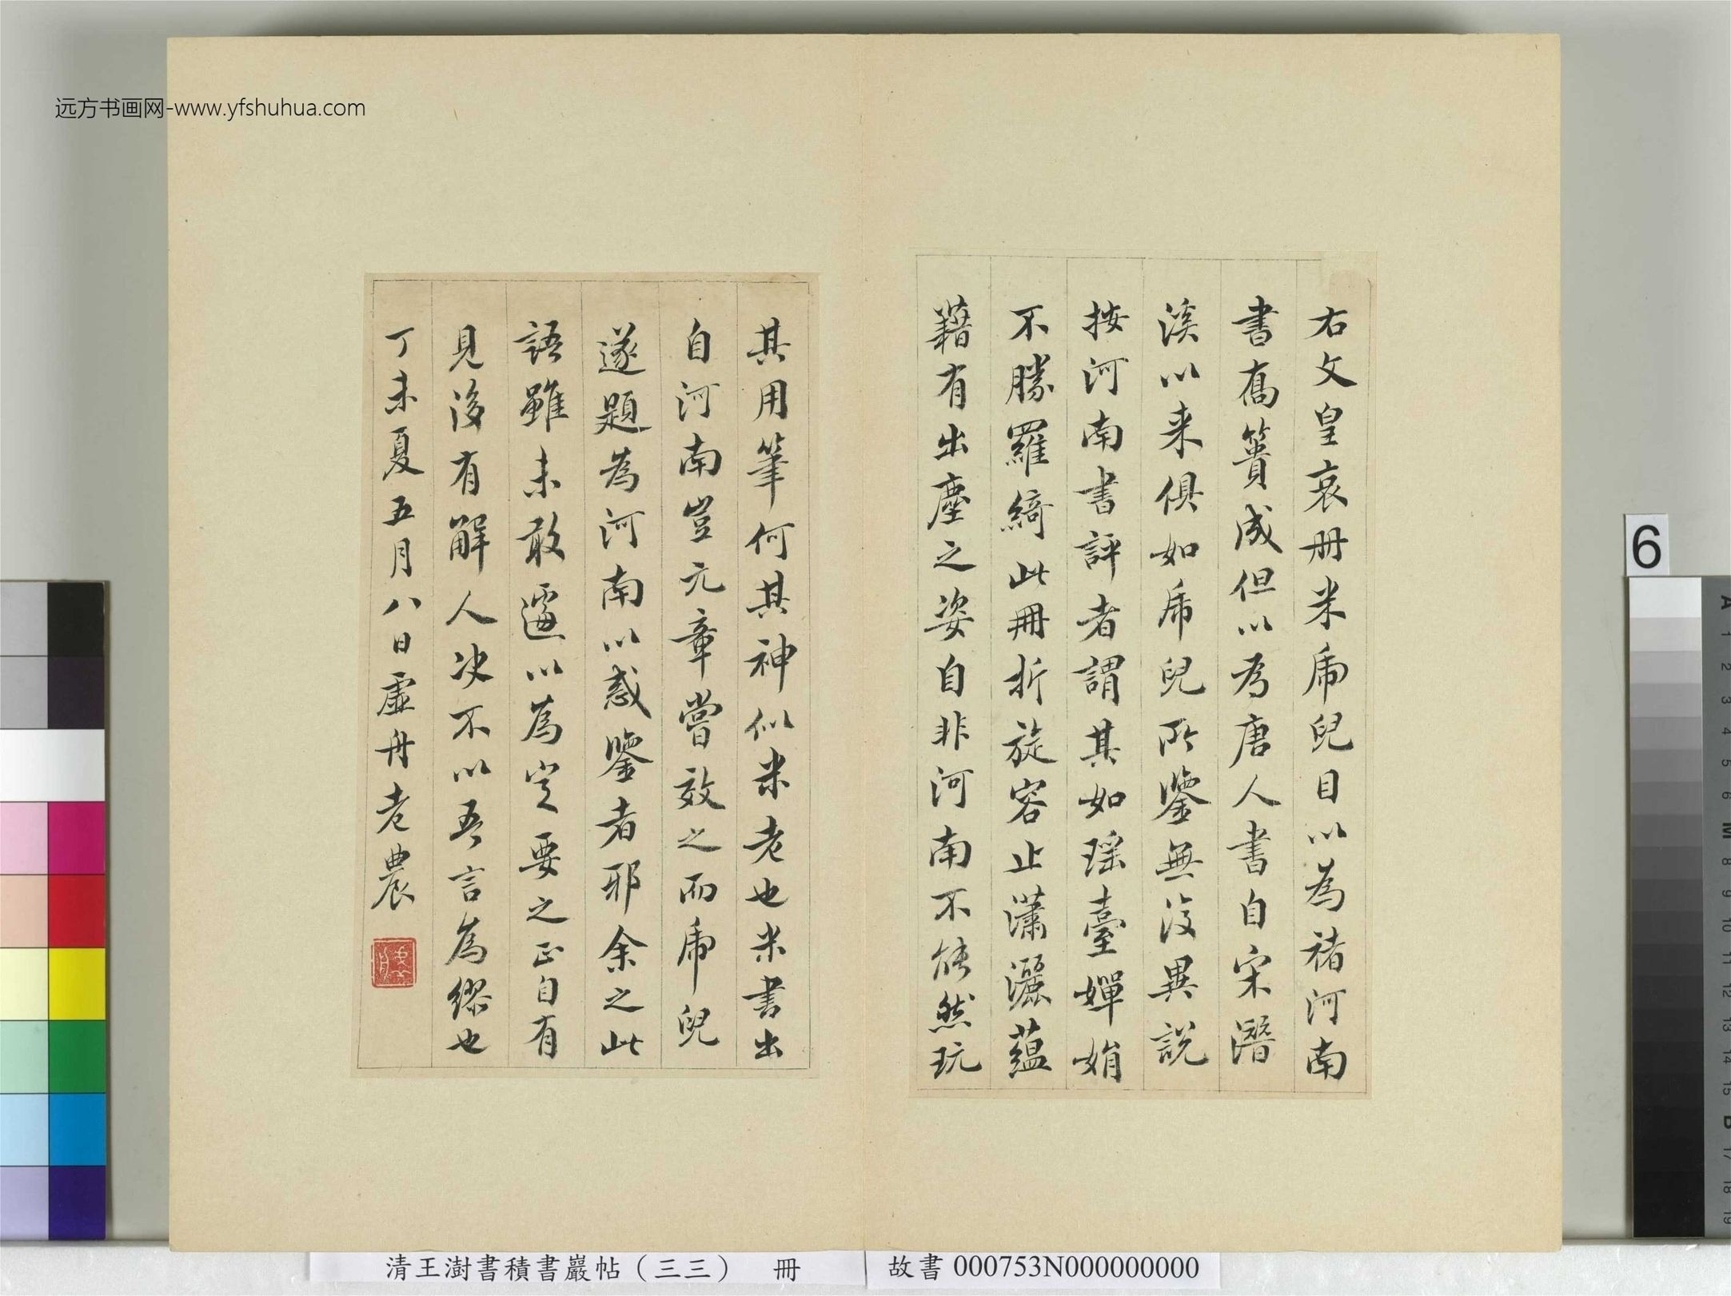 远方书画网-www.yfshuhua.com
右文皇哀册米虎兒目以為褚河南
書舊簣成但以為唐人書自宋潛
溪以来俱如虎兒所鑒無復異説
按河南書評者謂其如瑶臺嬋娟
不勝羅綺此冊折旋容止瀟灑蘊
藉有出塵之姿自非河南不能然玩
其用筆何其神似米老也米書出
自河南豈元章嘗效之而虎兒
遂題為河南以惑鑒者邪余之此
語雖未敢遽以為定要之正自有
見後有解人决不以吾言為繆也
丁未夏五月八日虛舟老農
6
清王澍書積書巖帖（三三） 冊
故書 000753N000000000